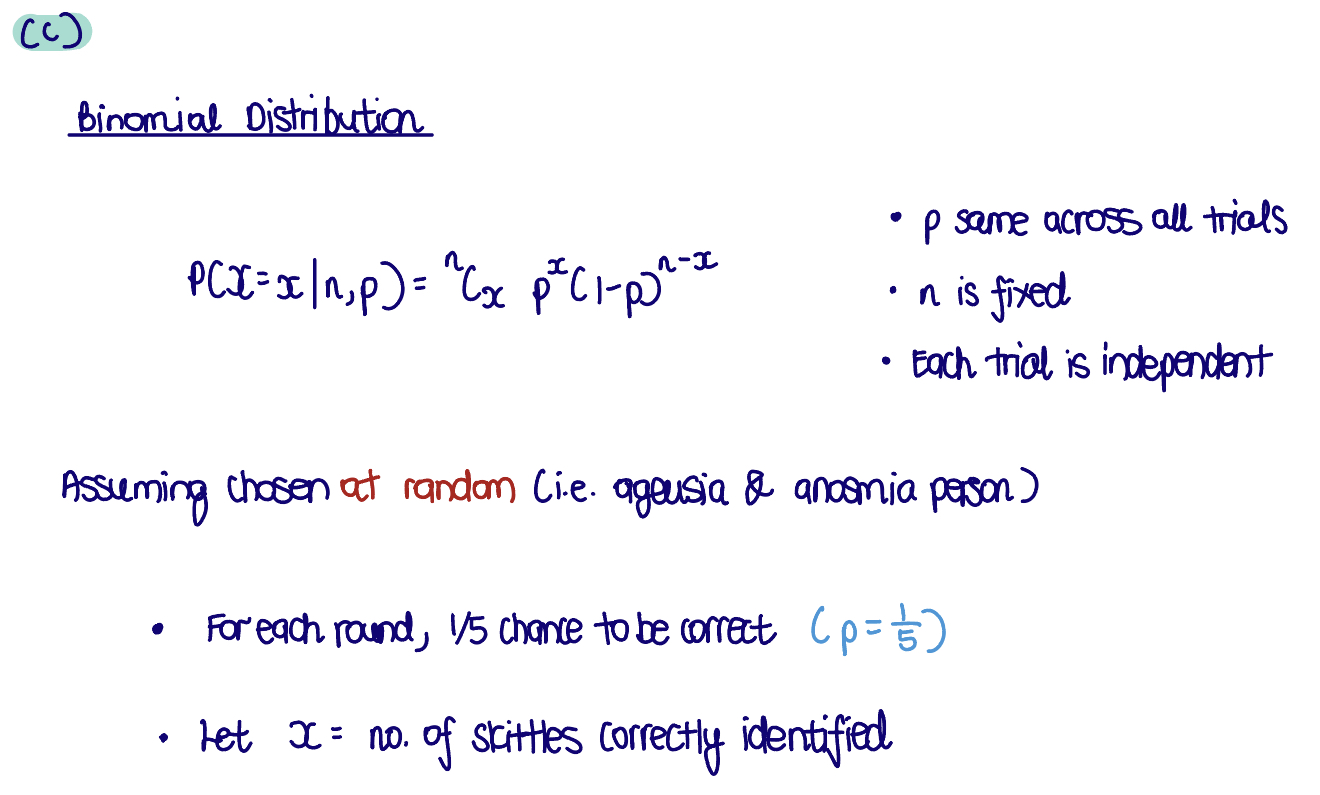 (c)
Binomial Distribution
• p same across all trials
P(X=x|n,p) = ⁿCₓ pˣ(1-p)ⁿ⁻ˣ
• n is fixed
• Each trial is independent
Assuming chosen at random (i.e. ageusia & anosmia person)
• For each round, 1/5 chance to be correct (p = 1/5)
• Let x = no. of skittles correctly identified